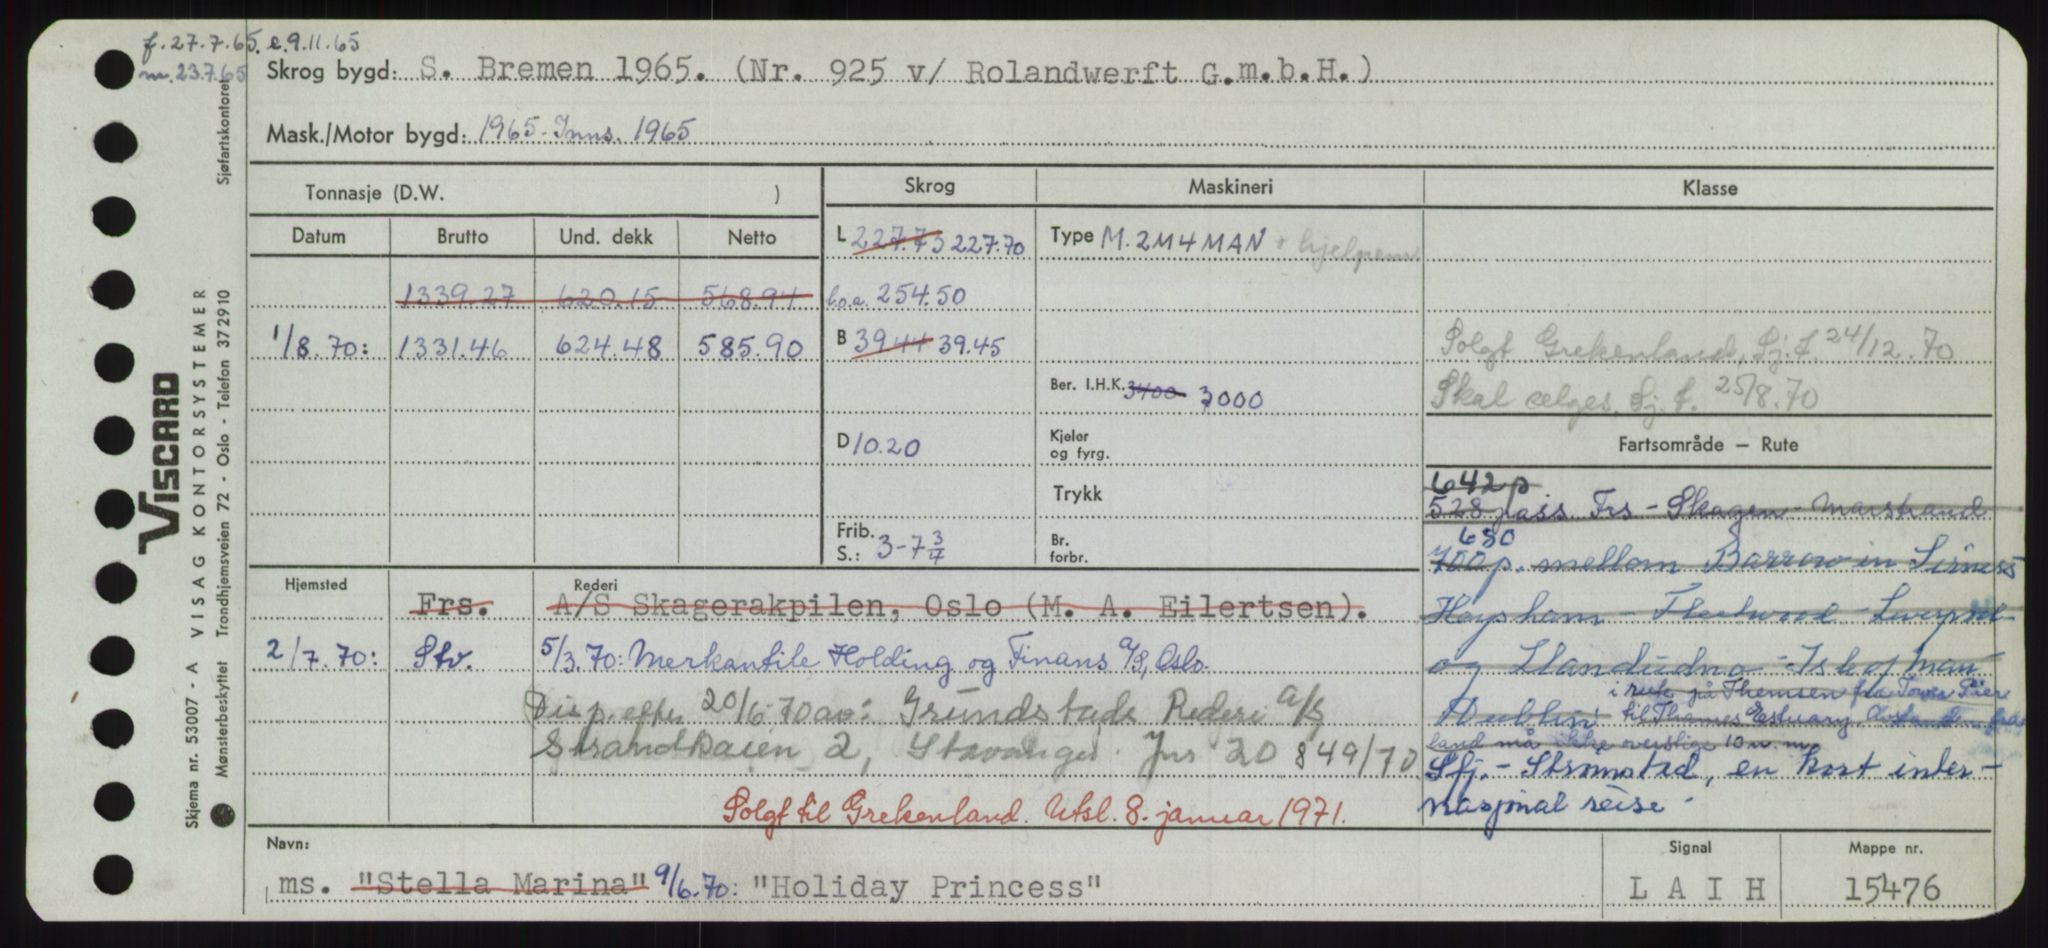 f. 27.7.65. e. 9.11.65
m. 23.7.65
Skrog bygd: S. Bremen 1965. (Nr. 925 v/ Rolandwerft G.m.b.H.)
Mask./Motor bygd: 1965 - Inns. 1965
Tonnasje (D.W. )
Skrog Maskineri Klasse
Datum Brutto Und. dekk Netto
L 227.73 227.70
Type M. 2M4MAN + hjelpem
1339.27 620.15 568.94
l.o.a. 254.50
1/8.70: 1331.46 624.48 585.90
B 39.44 39.45
Solgt Grekenland, Sj.f. 24/12.70
Ber. I.H.K. 3400 3000
Skal selges. Sj.f. 25/8.70
D 10.20
Kjeler og fyrg.
Fartsområde — Rute
Trykk
642 p
528 pass. Frs - Skagen - Marstrand
Frib. S.: 3-7 3/4
Br. forbr.
680
700 p. mellom Barrow in
Hjemsted Rederi
Frs. A/S Skagerakpilen, Oslo (M. A. Eilertsen).
Heysham - Fleetwood - Liverpool
2/7.70: Stv. 5/3.70: Merkantile Holding og Finans A/S, Oslo.
og Llandudno - Isle of Man
i rute på Themsen fra Tower Piere
Disp. etter 20/6 70 av: Grundstads Rederi A/S
Dublin til Thames Estuary. Avstanden fra
Strandkaien 2, Stavanger. Jnr 20 849/70
land må ikke overstige 10 n. m.
Sfj. - Strømstad, en kort inter-
nasjonal reise -
Solgt til Grekenland. Utsl. 8. januar 1971.
Navn: Signal Mappe nr.
ms. "Stella Marina" 9/6.70: "Holiday Princess" L A I H 15476
VISCARD
Skjema nr. 53007 - A VISAG KONTORSYSTEMER
Mønsterbeskyttet Trondhjemsveien 72 - Oslo - Telefon 372910
Sjøfartskontoret